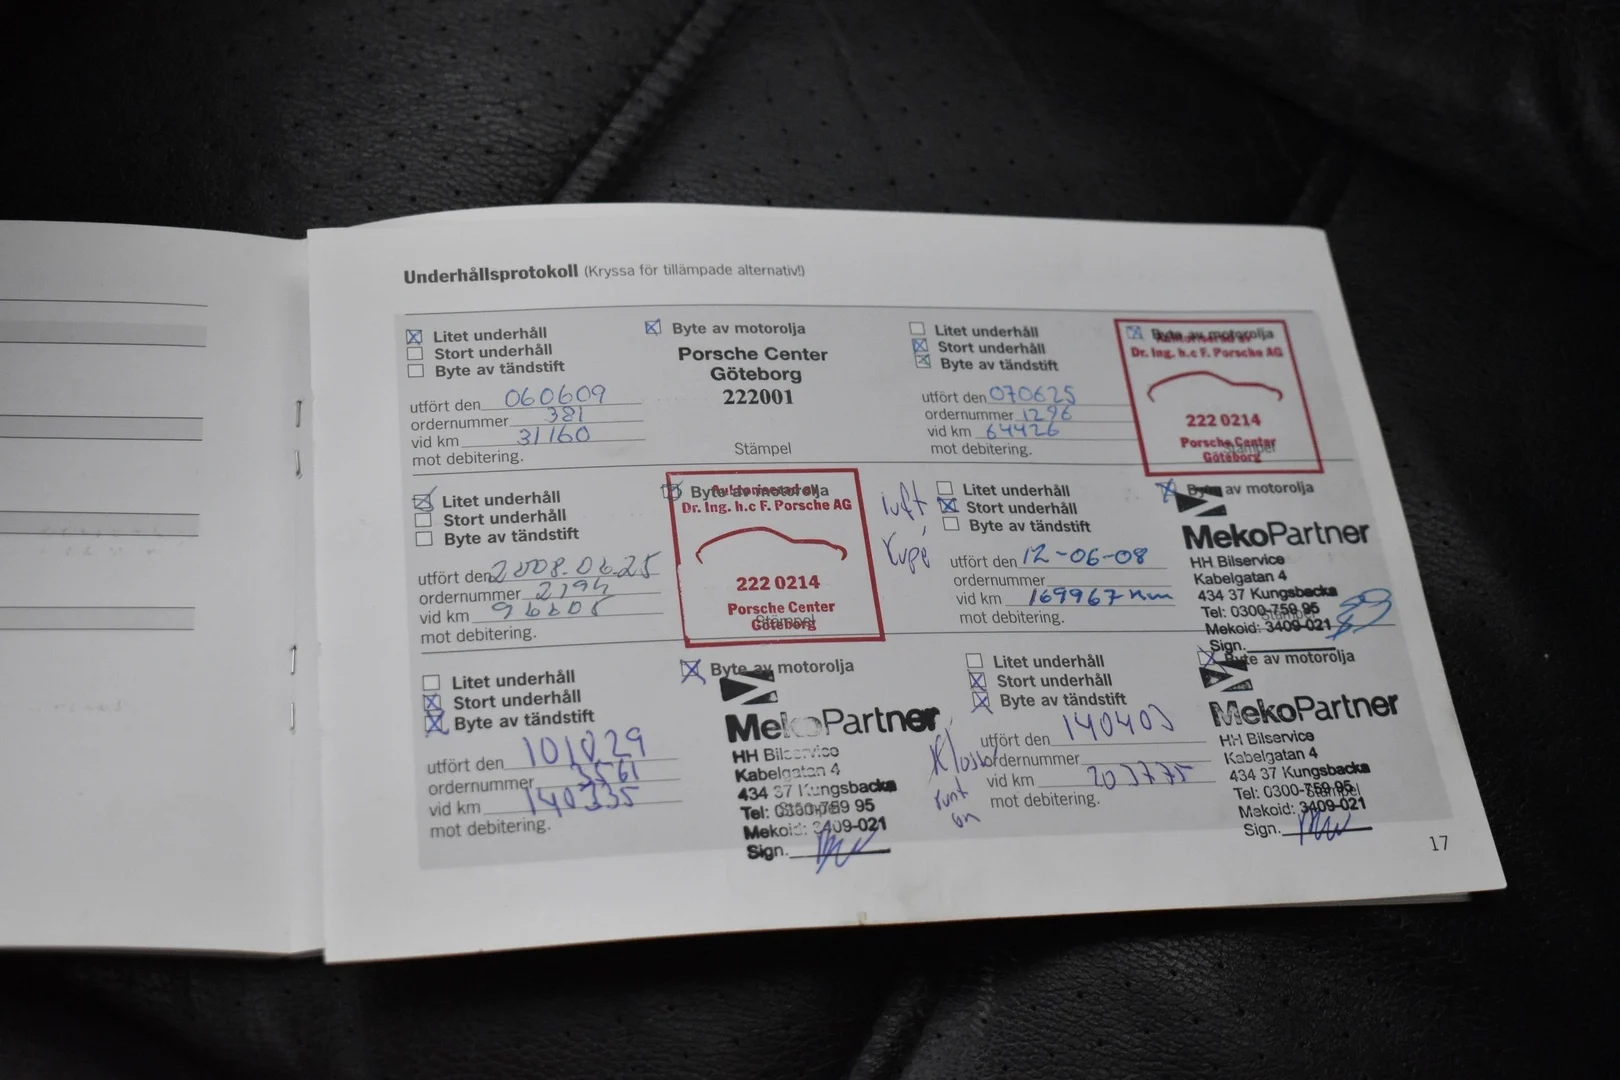 Underhållsprotokoll (Kryssa för tillämpade alternativ!)
Litet underhåll
Stort underhåll
Byte av tändstift
utfört den 060609
ordernummer 381
vid km 31160
mot debitering.
Byte av motorolja
Porsche Center
Göteborg
222001
Stämpel
Litet underhåll
Stort underhåll
Byte av tändstift
utfört den 070625
ordernummer 1296
vid km 64426
mot debitering.
Byte av motorolja
Auktoriserad av
Dr. Ing. h.c F. Porsche AG
222 0214
Porsche Center
Göteborg
Stämpel
Litet underhåll
Stort underhåll
Byte av tändstift
utfört den 2008.06.25
ordernummer
vid km
mot debitering.
Byte av motorolja
Auktoriserad av
Dr. Ing. h.c F. Porsche AG
222 0214
Porsche Center
Göteborg
Stämpel
luft
Kupé
Litet underhåll
Stort underhåll
Byte av tändstift
utfört den 12-06-08
ordernummer
vid km 169967 km
mot debitering.
Byte av motorolja
MekoPartner
HH Bilservice
Kabelgatan 4
434 37 Kungsbacka
Tel: 0300-759 95
Stämpel
Mekoid: 3409-021
Sign.
Litet underhåll
Stort underhåll
Byte av tändstift
utfört den
ordernummer 3561
vid km 140335
mot debitering.
Byte av motorolja
MekoPartner
HH Bilservice
Kabelgatan 4
434 37 Kungsbacka
Tel: 0300-759 95
Mekoid: 3409-021
Sign.
runt
om
Litet underhåll
Stort underhåll
Byte av tändstift
utfört den 140403
ordernummer
vid km 203775
mot debitering.
Byte av motorolja
MekoPartner
HH Bilservice
Kabelgatan 4
434 37 Kungsbacka
Tel: 0300-759 95
Stämpel
Mekoid: 3409-021
Sign.
17